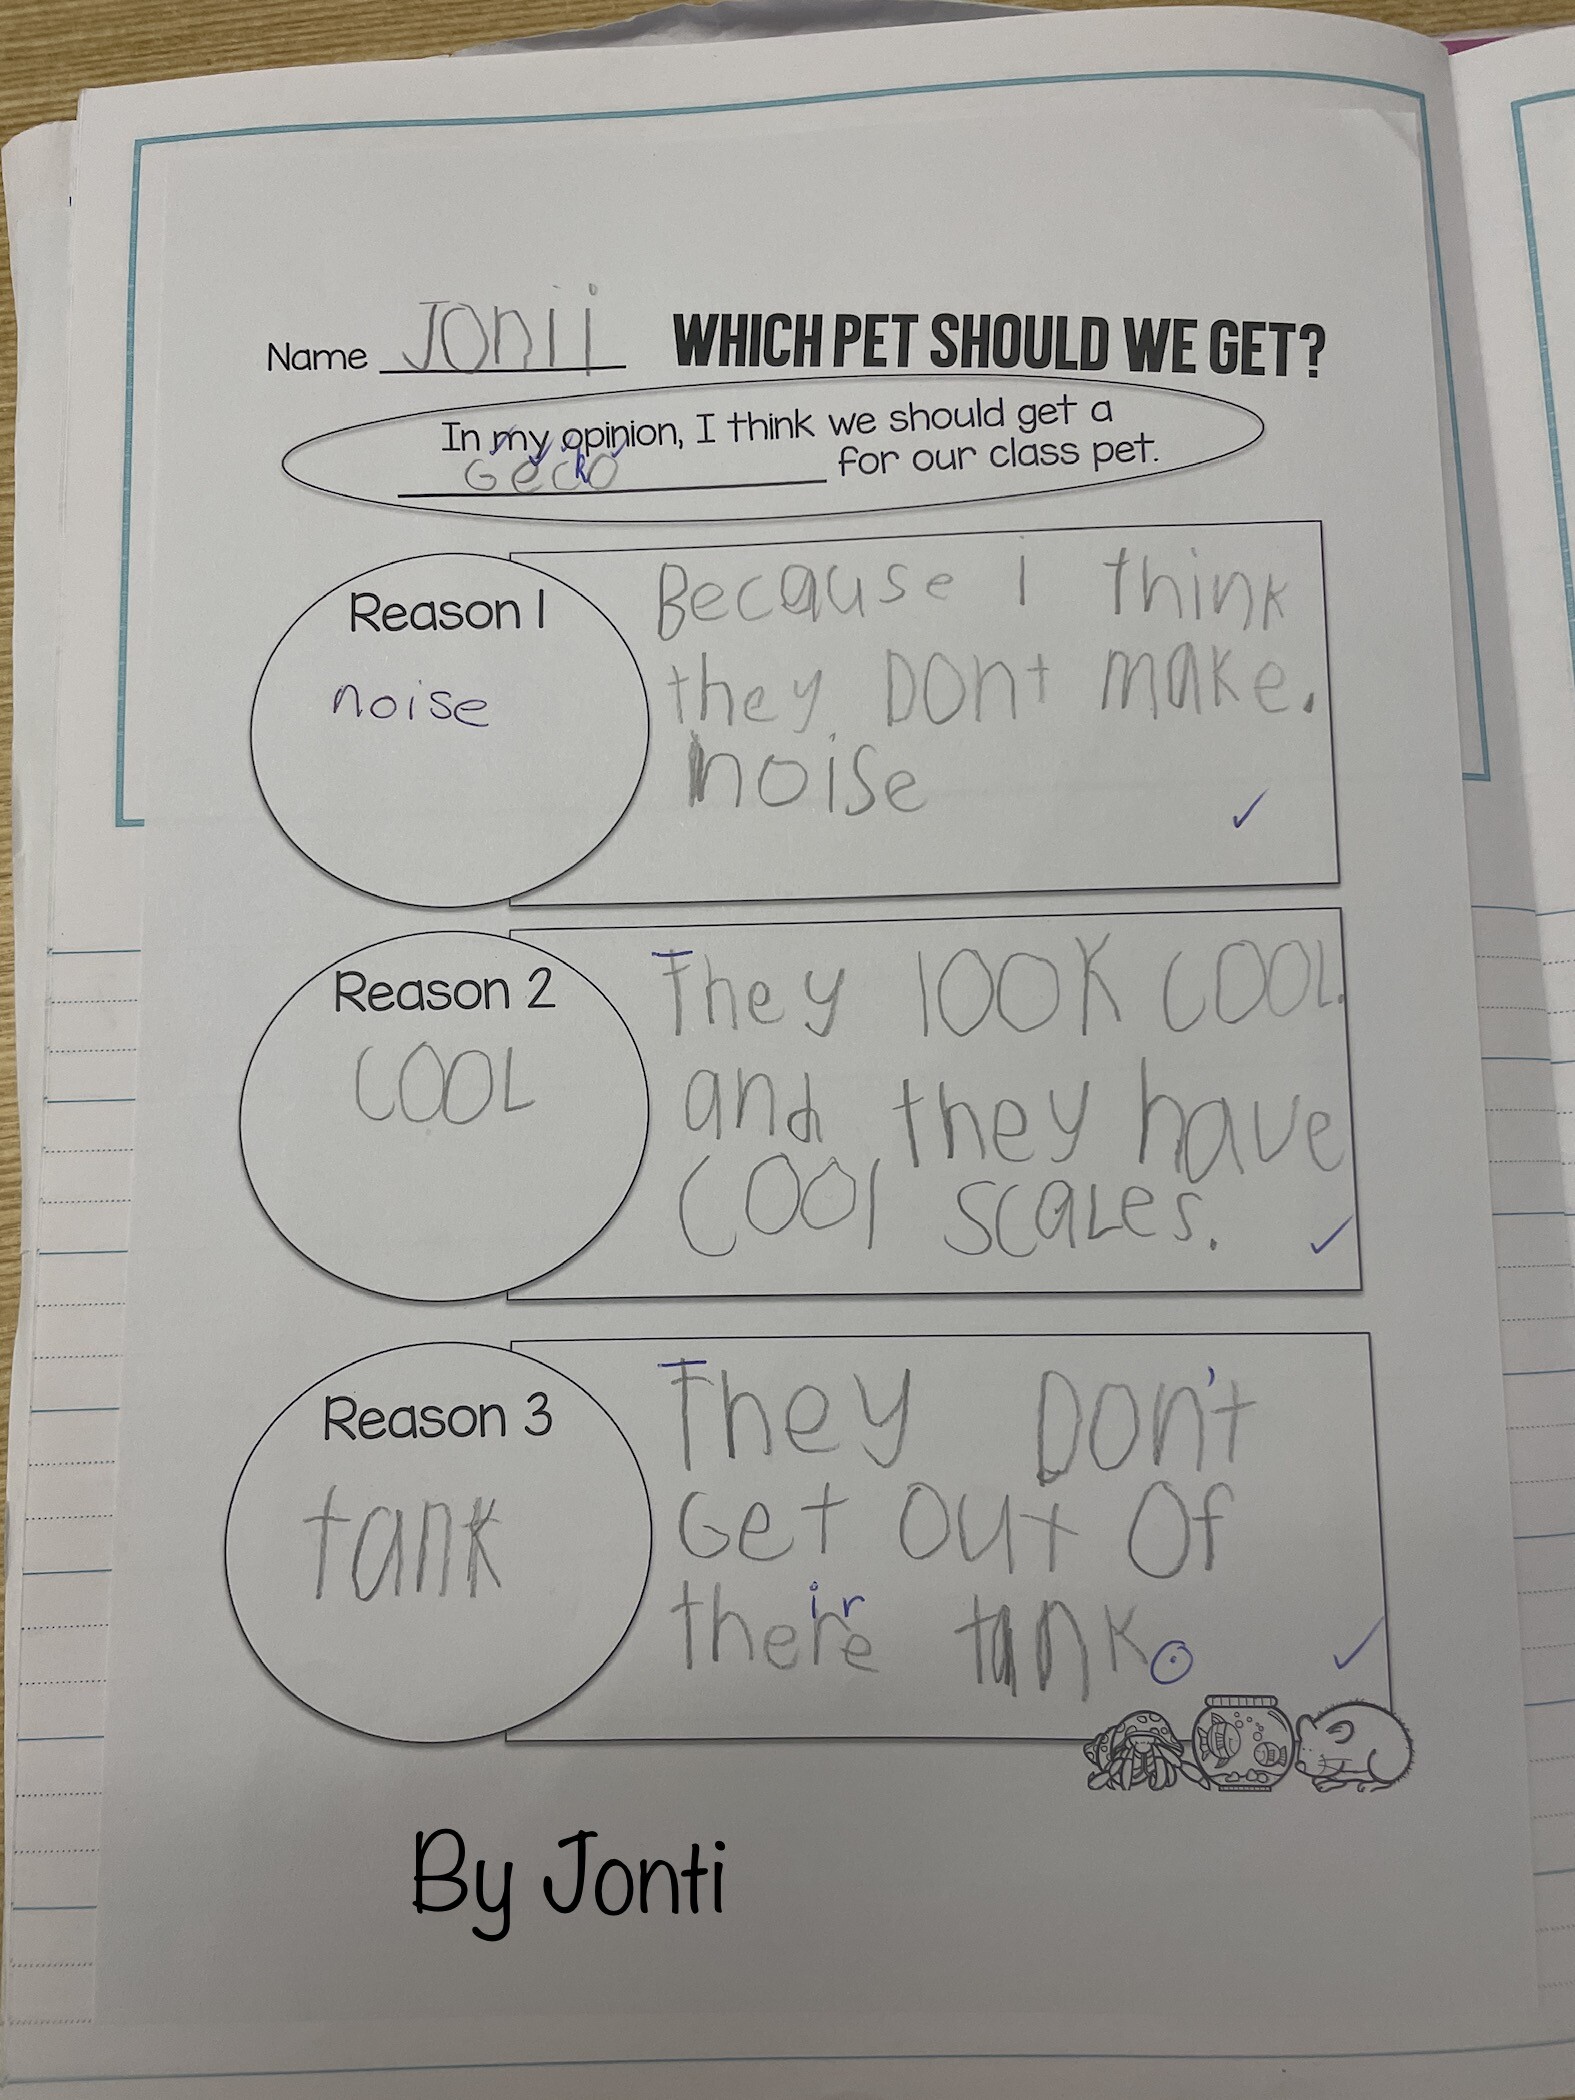 Name Jonti WHICH PET SHOULD WE GET?
In my opinion, I think we should get a
Gecko for our class pet.
Reason 1
noise
Because i think
they DOnt make.
noise
Reason 2
COOL
They look COOL.
and they have
COOl scaLes.
Reason 3
tank
They DOn't
Get Out Of
their tank.
By Jonti